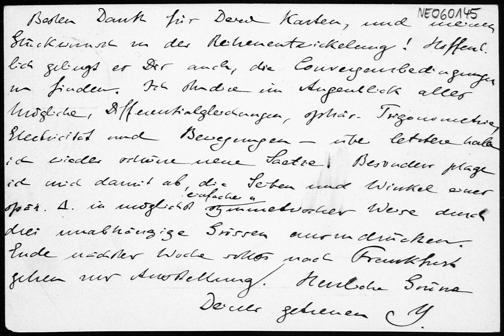 NE060145
Besten Dank für Deine Karten, und meinen
Glückwunsch zu der Reihenentwickelung! Hoffent-
lich gelingt es Dir auch, die Convergenzbedingungen
zu finden. Ich studire im Augenblick alles
Mögliche, Differentialgleichungen, sphär. Trigonometrie,
Electricität und Bewegungen – über letztere habe
ich wieder schöne neue Saetze! Besonders plage
ich mich damit ab, die Seiten und Winkel einer
sphär. Δ. in möglichst einfacher u symmetrischer Weise durch
drei unabhängige Grössen auszudrücken.
Ende nächster Woche soll's nach Frankfurt
gehen zur Ausstellung! Herzliche Grüsse
Deines getreuen